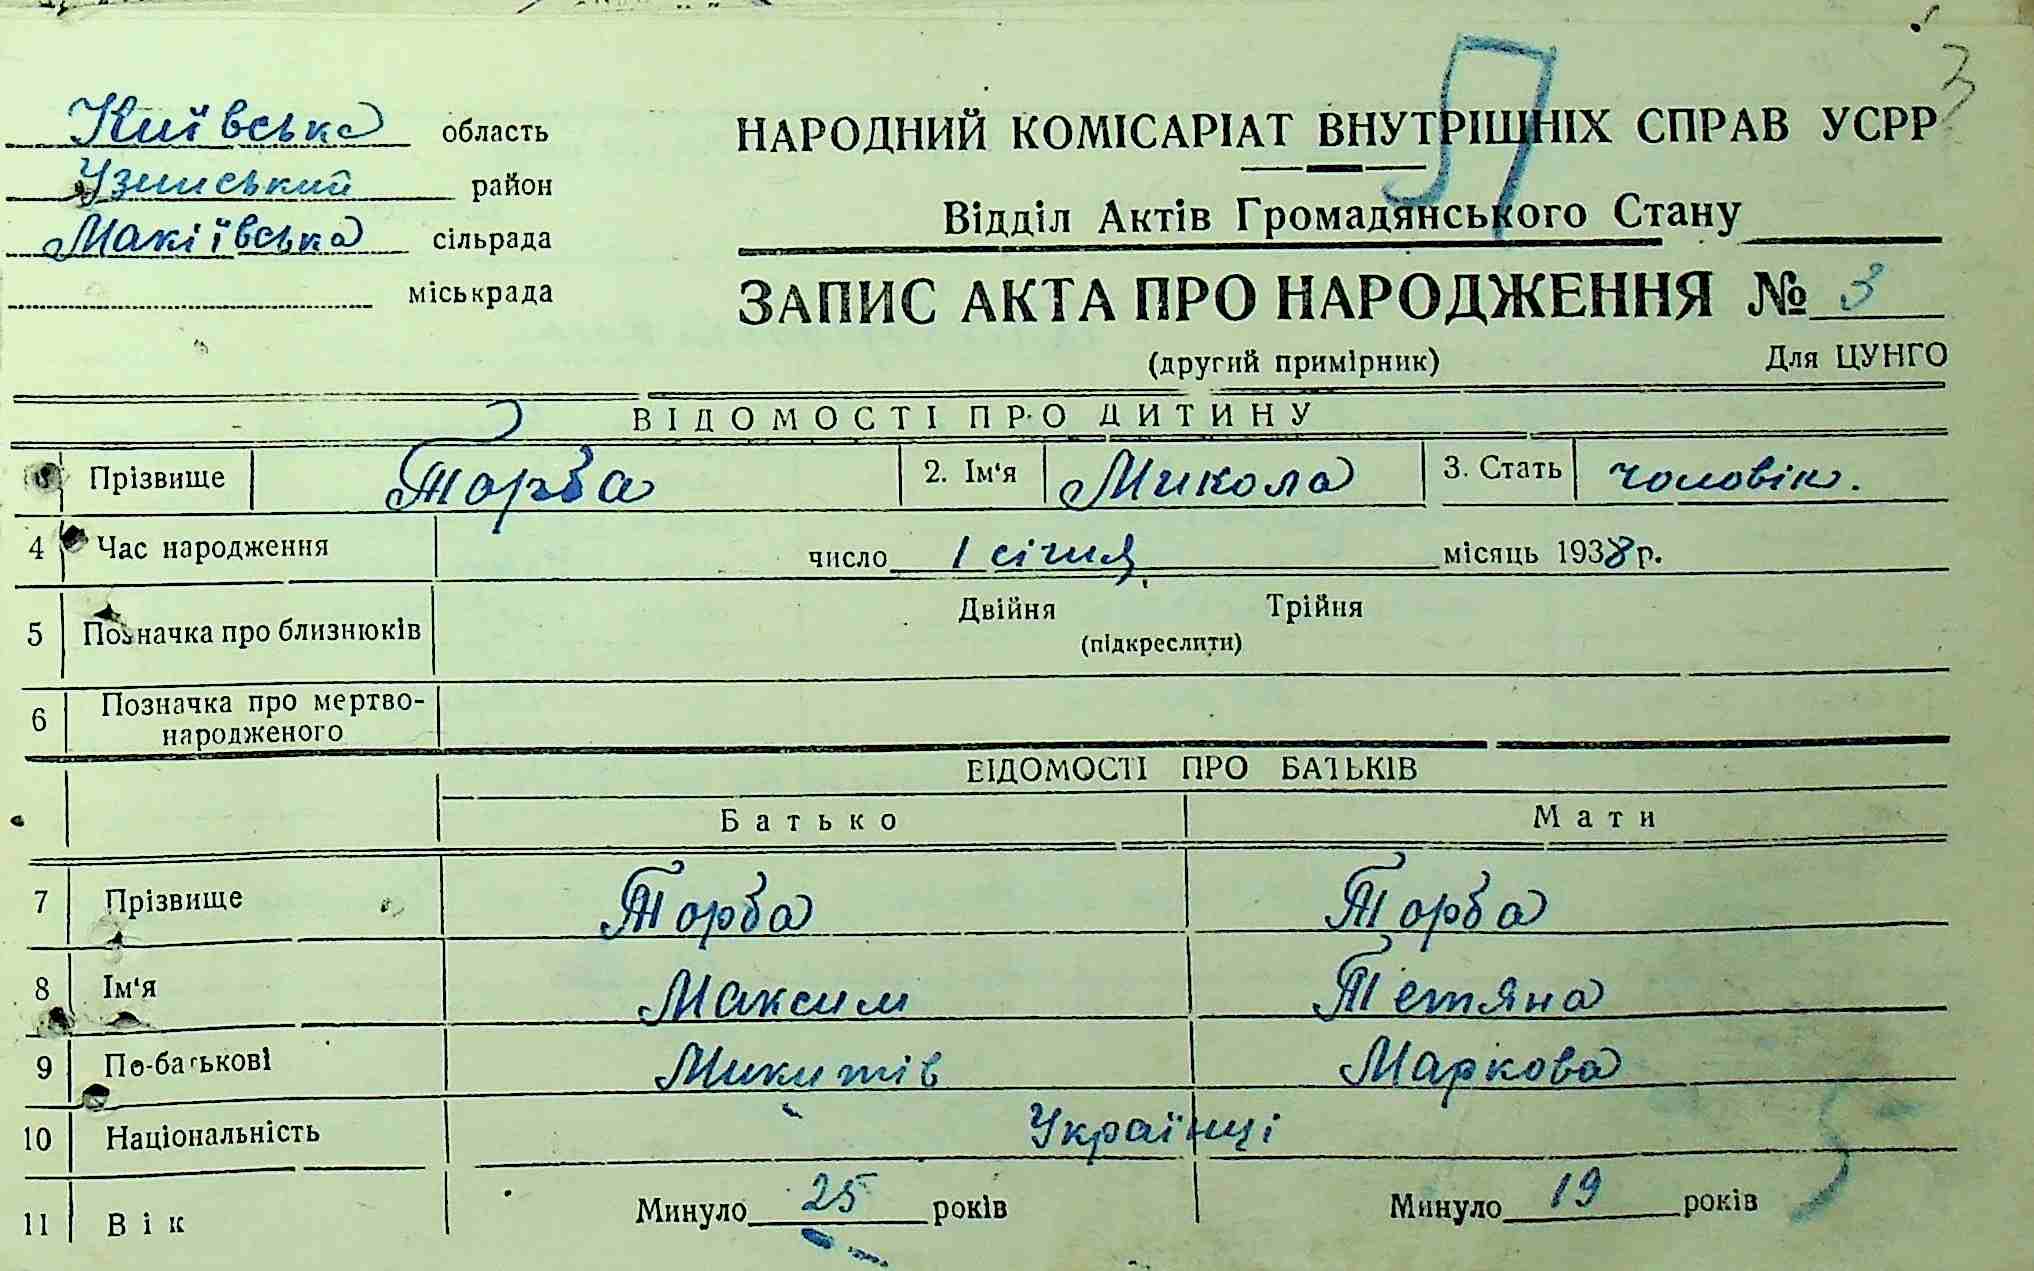 3
Київська область
Узинський район
Макіївська сільрада
міськрада
П
НАРОДНИЙ КОМІСАРІАТ ВНУТРІШНІХ СПРАВ УСРР
Відділ Актів Громадянського Стану
ЗАПИС АКТА ПРО НАРОДЖЕННЯ № 3
(другий примірник) Для ЦУНГО
ВІДОМОСТІ ПРО ДИТИНУ
Прізвище Торба 2. Ім'я Микола 3. Стать чоловік.
4 Час народження число 1 січня місяць 1938 р.
5 Позначка про близнюків Двійня Трійня
(підкреслити)
6 Позначка про мертво-
народженого
ВІДОМОСТІ ПРО БАТЬКІВ
Батько Мати
7 Прізвище Торба Торба
8 Ім'я Максим Тетяна
9 По-батькові Микитів Маркова
10 Національність Українці
11 Вік Минуло 25 років Минуло 19 років